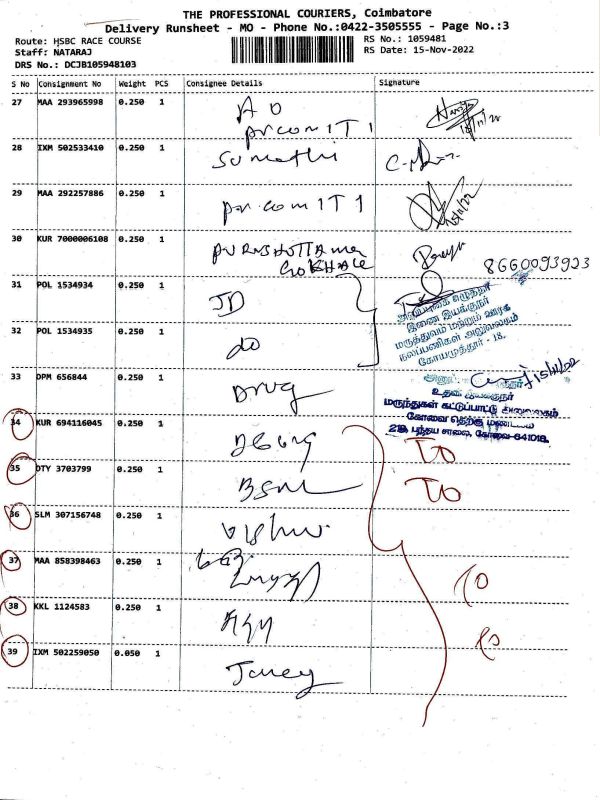 THE PROFESSIONAL COURIERS, Coimbatore
Delivery Runsheet - MO - Phone No.:0422-3505555 - Page No.:3
Route: HSBC RACE COURSE
RS No.: 1059481
Staff: NATARAJ
RS Date: 15-Nov-2022
DRS No.: DCJB105948103
S No Consignment No Weight PCS Consignee Details Signature
27 MAA 293965998 0.250 1 A O
28 IXM 502533410 0.250 1 Sumathi
29 MAA 292257886 0.250 1
30 KUR 7000006108 0.250 1 8660093923
31 POL 1534934 0.250 1 JD
இணை இயக்குநர்
மருத்துவம் மற்றும் ஊரக
நலப்பணிகள் அலுவலகம்
கோயமுத்தூர் - 18.
32 POL 1534935 0.250 1 do
33 DPM 656844 0.250 1 Drug
உதவி இயக்குநர்
மருந்துகள் கட்டுப்பாட்டு அலுவலகம்
கோவை தெற்கு மண்டலம்
219, பந்தய சாலை, கோவை-641018.
34 KUR 694116045 0.250 1 TO
35 DTY 3703799 0.250 1 BSNL TO
36 SLM 307156748 0.250 1
37 MAA 858398463 0.250 1 TO
38 KKL 1124583 0.250 1
39 IXM 502259050 0.050 1